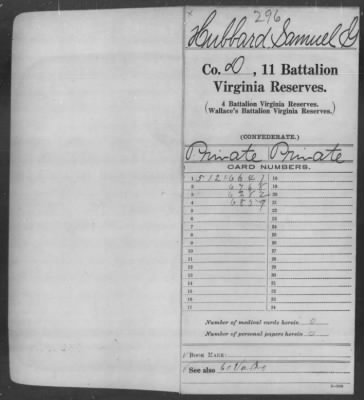 296
Hubbard Samuel G
Co. D, 11 Battalion
Virginia Reserves.
(4 Battalion Virginia Reserves.
Wallace's Battalion Virginia Reserves.)
(CONFEDERATE.)
Private Private
CARD NUMBERS.
1 51216641 18
2 6768 19
3 20
4 6859 21
5 22
6 23
7 24
8 25
9 26
10 27
11 28
12 29
13 30
14 31
15 32
16 33
17 34
Number of medical cards herein 0
Number of personal papers herein 0
BOOK MARK:
See also